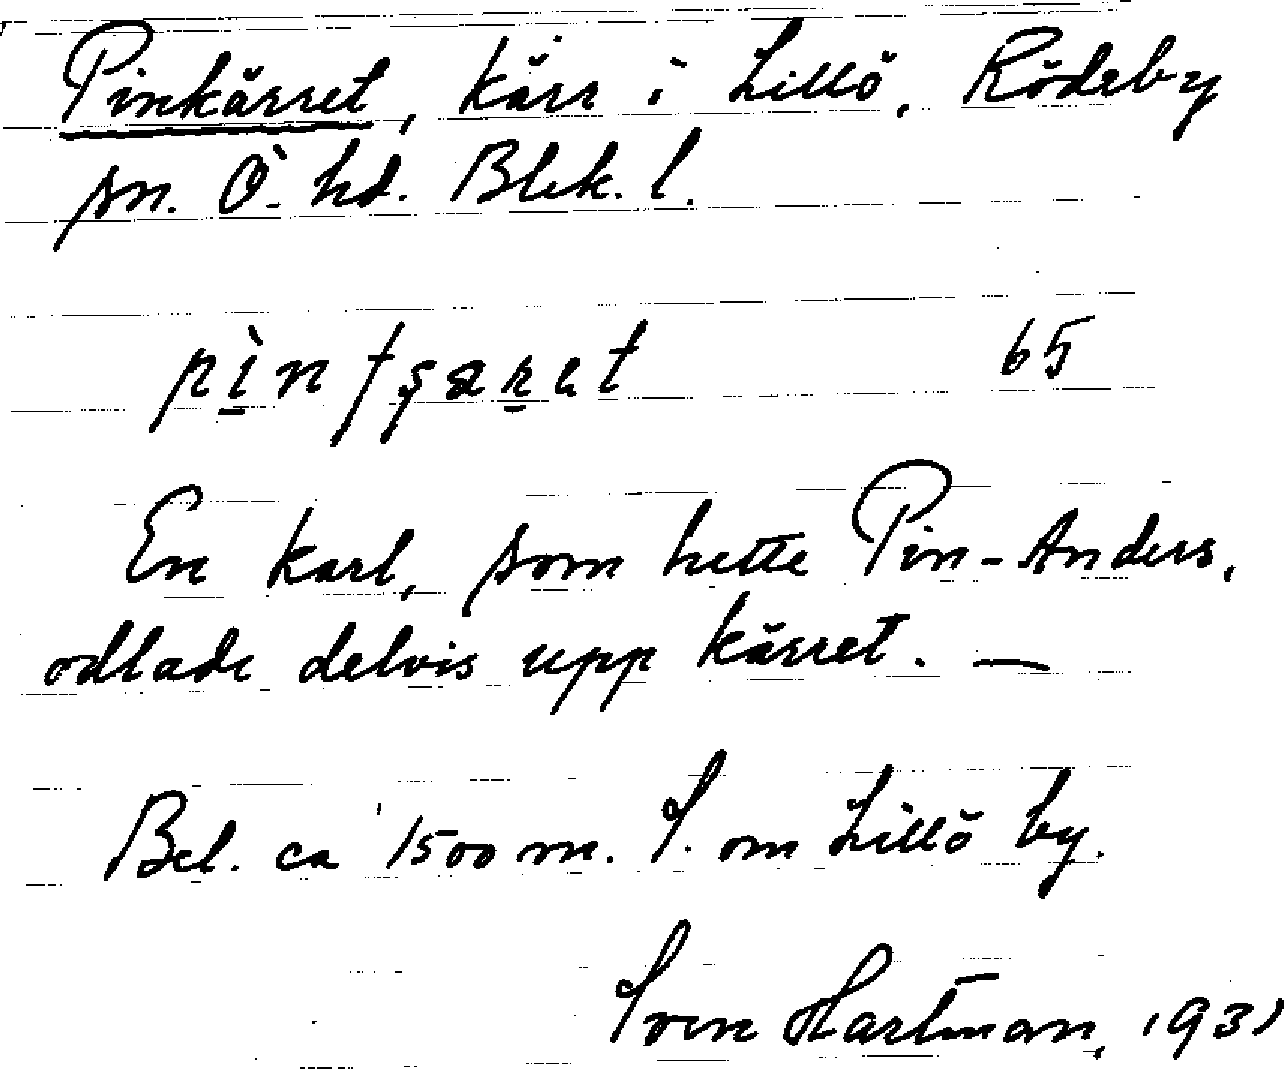 Pinkärret, kärr i Lillö, Rödeby
sn. Ö. hd. Blek. l.
pìntʂaret 65
En karl, som hette Pin-Anders,
odlade delvis upp kärret. —
Bel. ca 1500 m. S. om Lillö by.
Sven Hartman, 1931